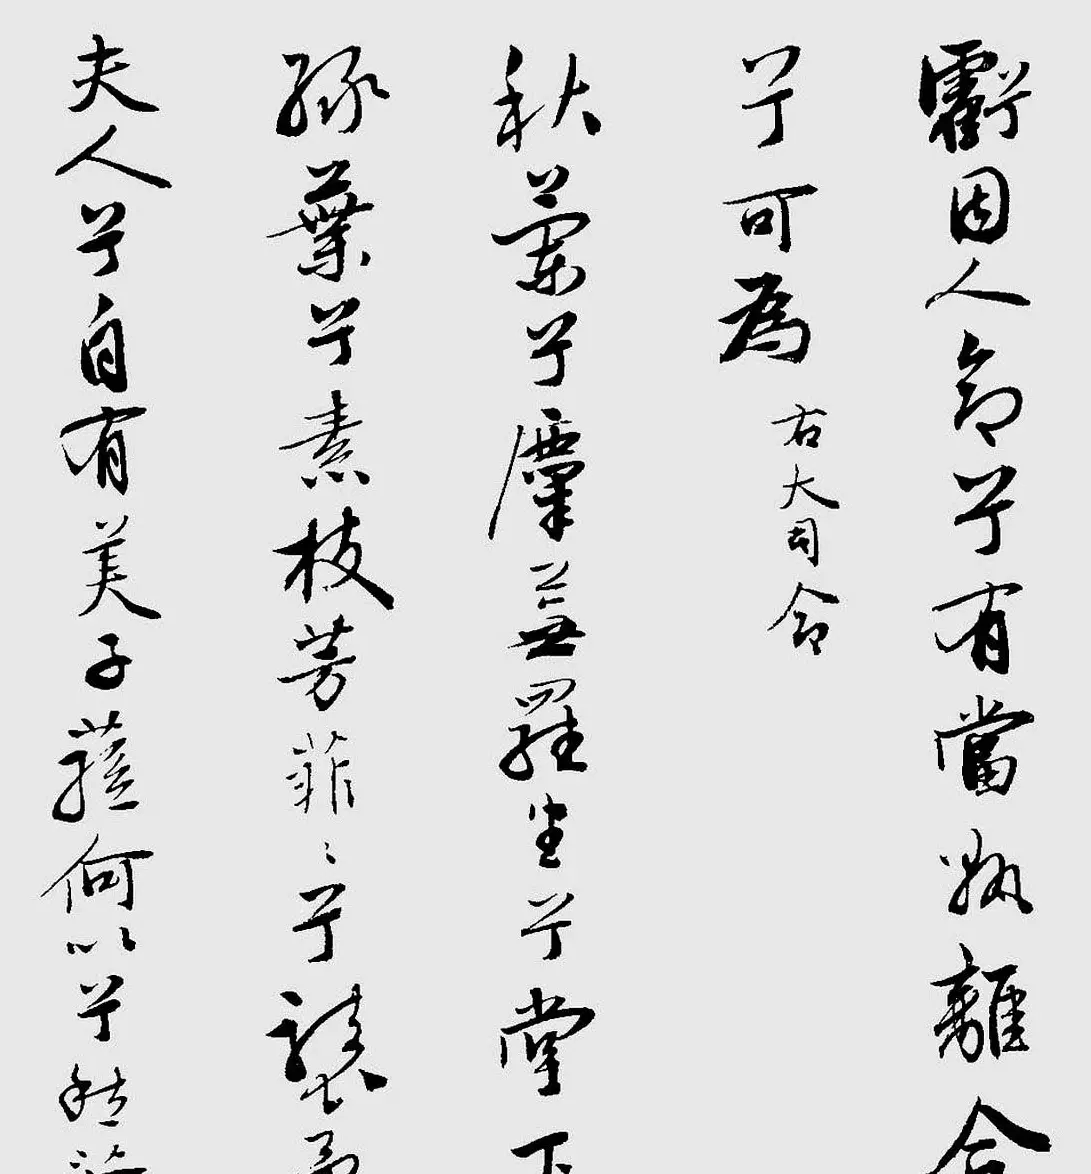 虧因人命兮有當孰離合
兮可為 右大司命
秋蘭兮麋蕪羅生兮堂下
綠葉兮素枝芳菲〻兮襲予
夫人兮自有美子蓀何以兮愁